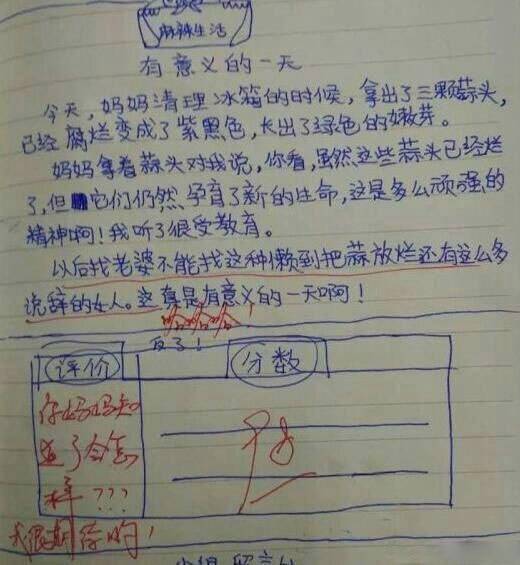 麻辣生活
有意义的一天
今天，妈妈清理冰箱的时候，拿出了三颗蒜头，
已经腐烂变成了紫黑色，长出了绿色的嫩芽。
妈妈拿着蒜头对我说，你看，虽然这些蒜头已经烂
了，但它们仍然孕育了新的生命，这是多么顽强的
精神啊！我听了很受教育。
以后找老婆不能找这种懒到把蒜放烂还有这么多
说辞的女人。这真是有意义的一天啊！
哈哈哈！
反了！
评价
分数
你妈妈知
道了会怎
样？？？
我很期待哟！
优